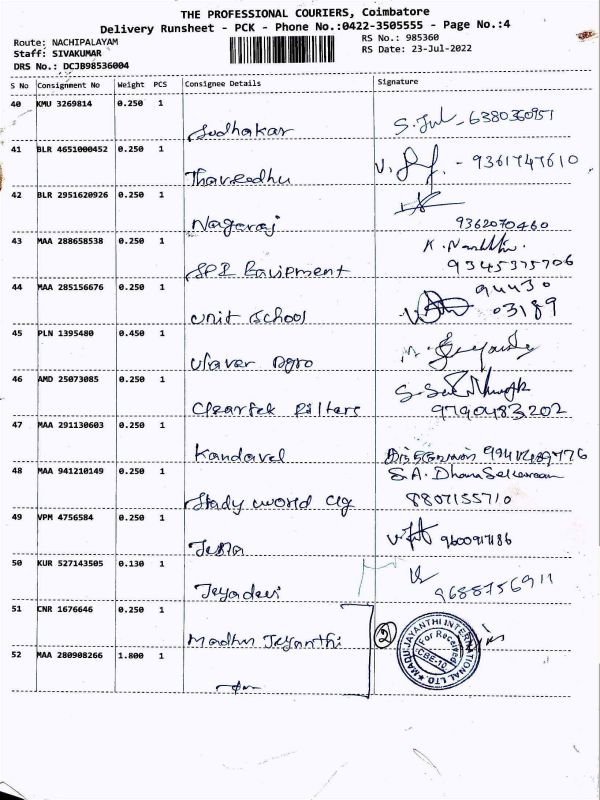 THE PROFESSIONAL COURIERS, Coimbatore
Delivery Runsheet - PCK - Phone No.:0422-3505555 - Page No.:4
Route: NACHIPALAYAM
RS No.: 985360
Staff: SIVAKUMAR
RS Date: 23-Jul-2022
DRS No.: DCJB98536004
S No Consignment No Weight PCS Consignee Details Signature
40 KMU 3269814 0.250 1
Sudhakar 6380360951
41 BLR 4651000452 0.250 1
- 9361747610
42 BLR 2951620926 0.250 1
Nagaraj 9362070460
43 MAA 288658538 0.250 1
SPI Equipment 9345375706
44 MAA 285156676 0.250 1
94430
Unit School 03189
45 PLN 1395480 0.450 1
Ulaver Agro
46 AMD 25073085 0.250 1
Cleartek Filters 9790483202
47 MAA 291130603 0.250 1
Kandavel
48 MAA 941210149 0.250 1
S.A. Dhana
Study world clg 8807155710
49 VPM 4756584 0.250 1
9600917186
50 KUR 527143505 0.130 1
Jeyadevi 9688756911
51 CNR 1676646 0.250 1
Madhu Jeyanthi
2
MADHUJAYANTHI INTERNATIONAL LTD.
For Received
CBE-10
52 MAA 280908266 1.800 1